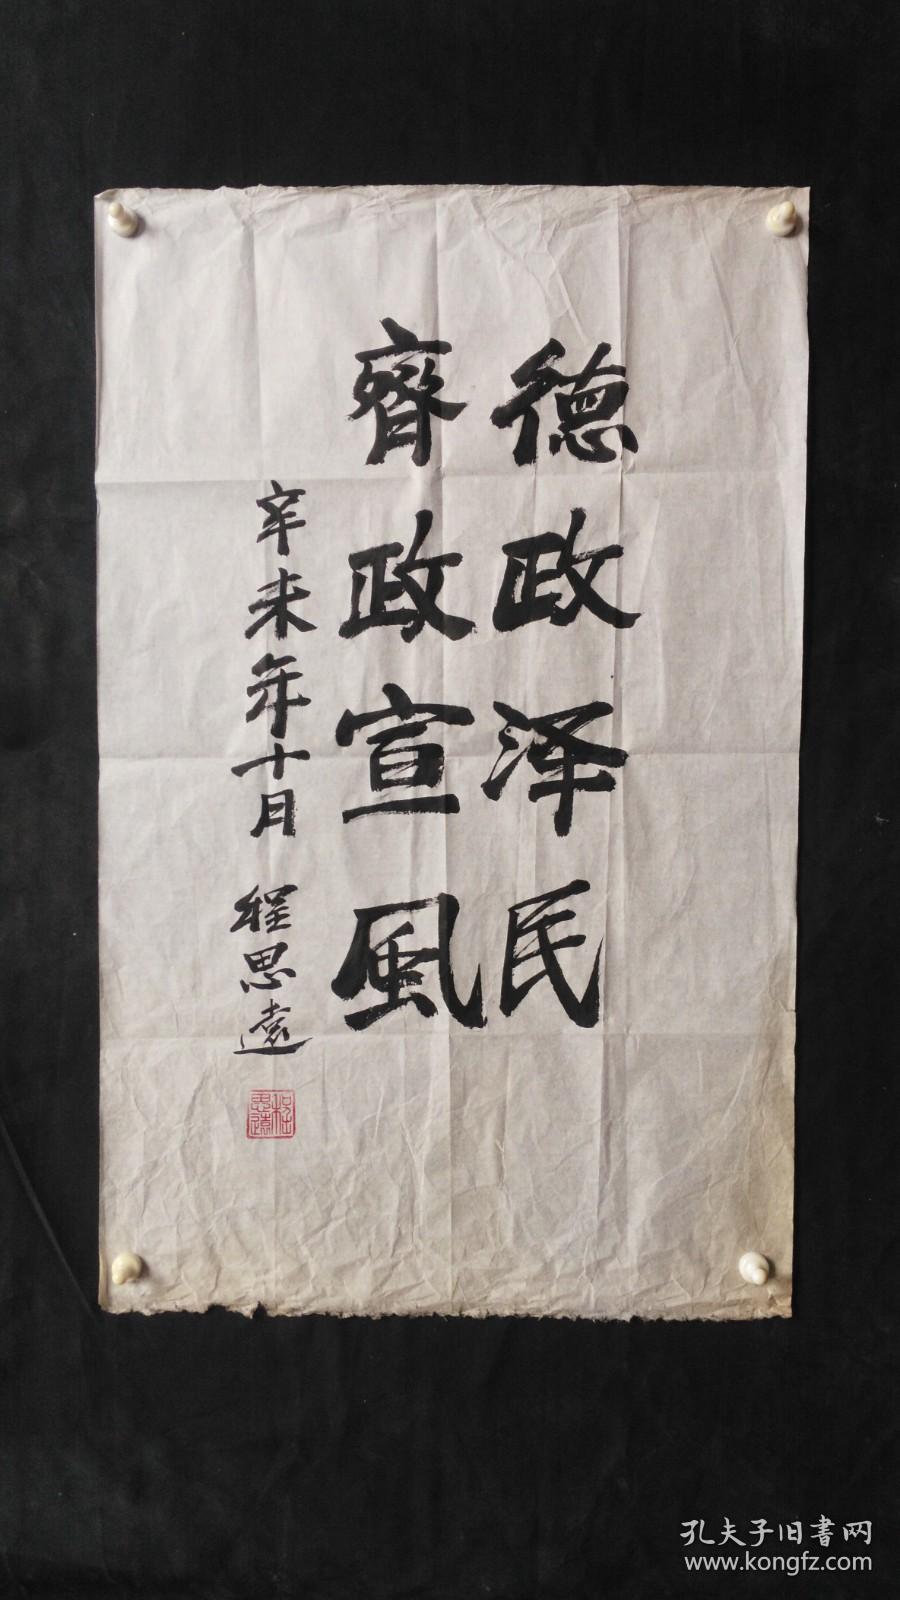 德政泽民
齊政宣風
辛未年十月 程思遠
程思遠
孔夫子旧書网
www.kongfz.com